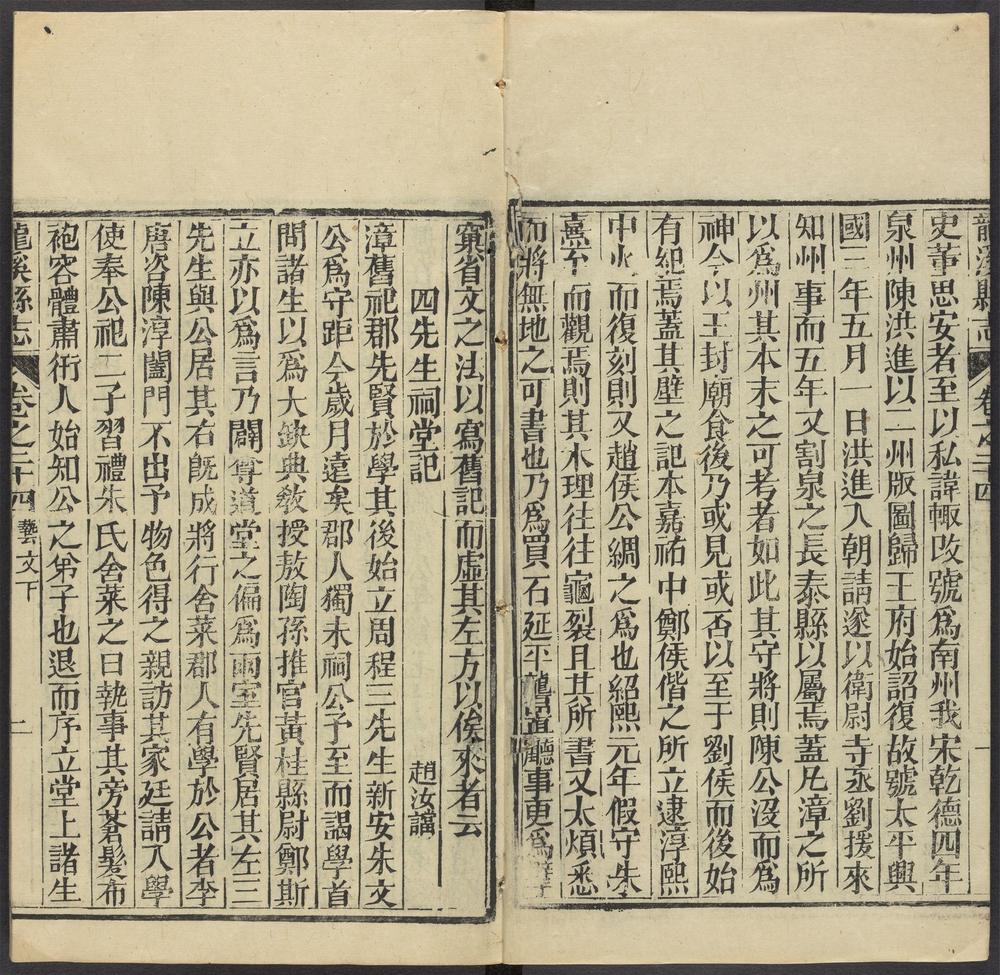 龍溪縣志 卷之二十四 一
史董思安者至以私諱輙攺號爲南州我宋乾德四年
泉州陳洪進以二州版圖歸王府始詔復故號太平興
國三年五月一日洪進入朝請遂以衛尉寺丞劉援來
知州事而五年又割泉之長泰縣以屬焉蓋凡漳之所
以爲州其本末之可考者如此其守將則陳公沒而爲
神今以王封廟食後乃或見或否以至于劉侯而後始
有紀焉蓋其壁之記本嘉祐中鄭侯偕之所立逮淳熙
中火而復刻則又趙侯公綢之爲也紹熙元年假守朱
熹至而觀焉則其木理往往龜裂且其所書又太煩悉
而將無地之可書也乃爲買石延平礱置廳事更爲
竄省文之法以寫舊記而虛其左方以俟來者云
四先生祠堂記 趙汝讜
漳舊祀郡先賢於學其後始立周程三先生新安朱文
公爲守距今歲月遠矣郡人獨未祠公予至而謁學首
問諸生以爲大缺典教授敖陶孫推官黃桂縣尉鄭斯
立亦以爲言乃闢尊道堂之偏爲兩室先賢居其左三
先生與公居其右旣成將行舍菜郡人有學於公者李
唐咨陳淳闔門不出予物色得之親訪其家延請入學
使奉公祀二子習禮朱氏舍菜之日執事其旁蒼髮布
袍容體肅衎人始知公之弟子也退而序立堂上諸生
龍溪縣志 卷之二十四 藝文下 二